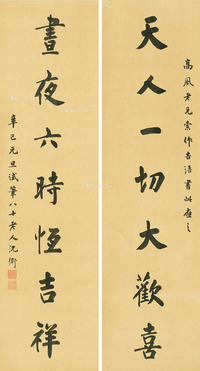 天人一切大歡喜
高風老兄索作吉語書此應之
晝夜六時恆吉祥
辛巳元旦試筆八十老人沈衛